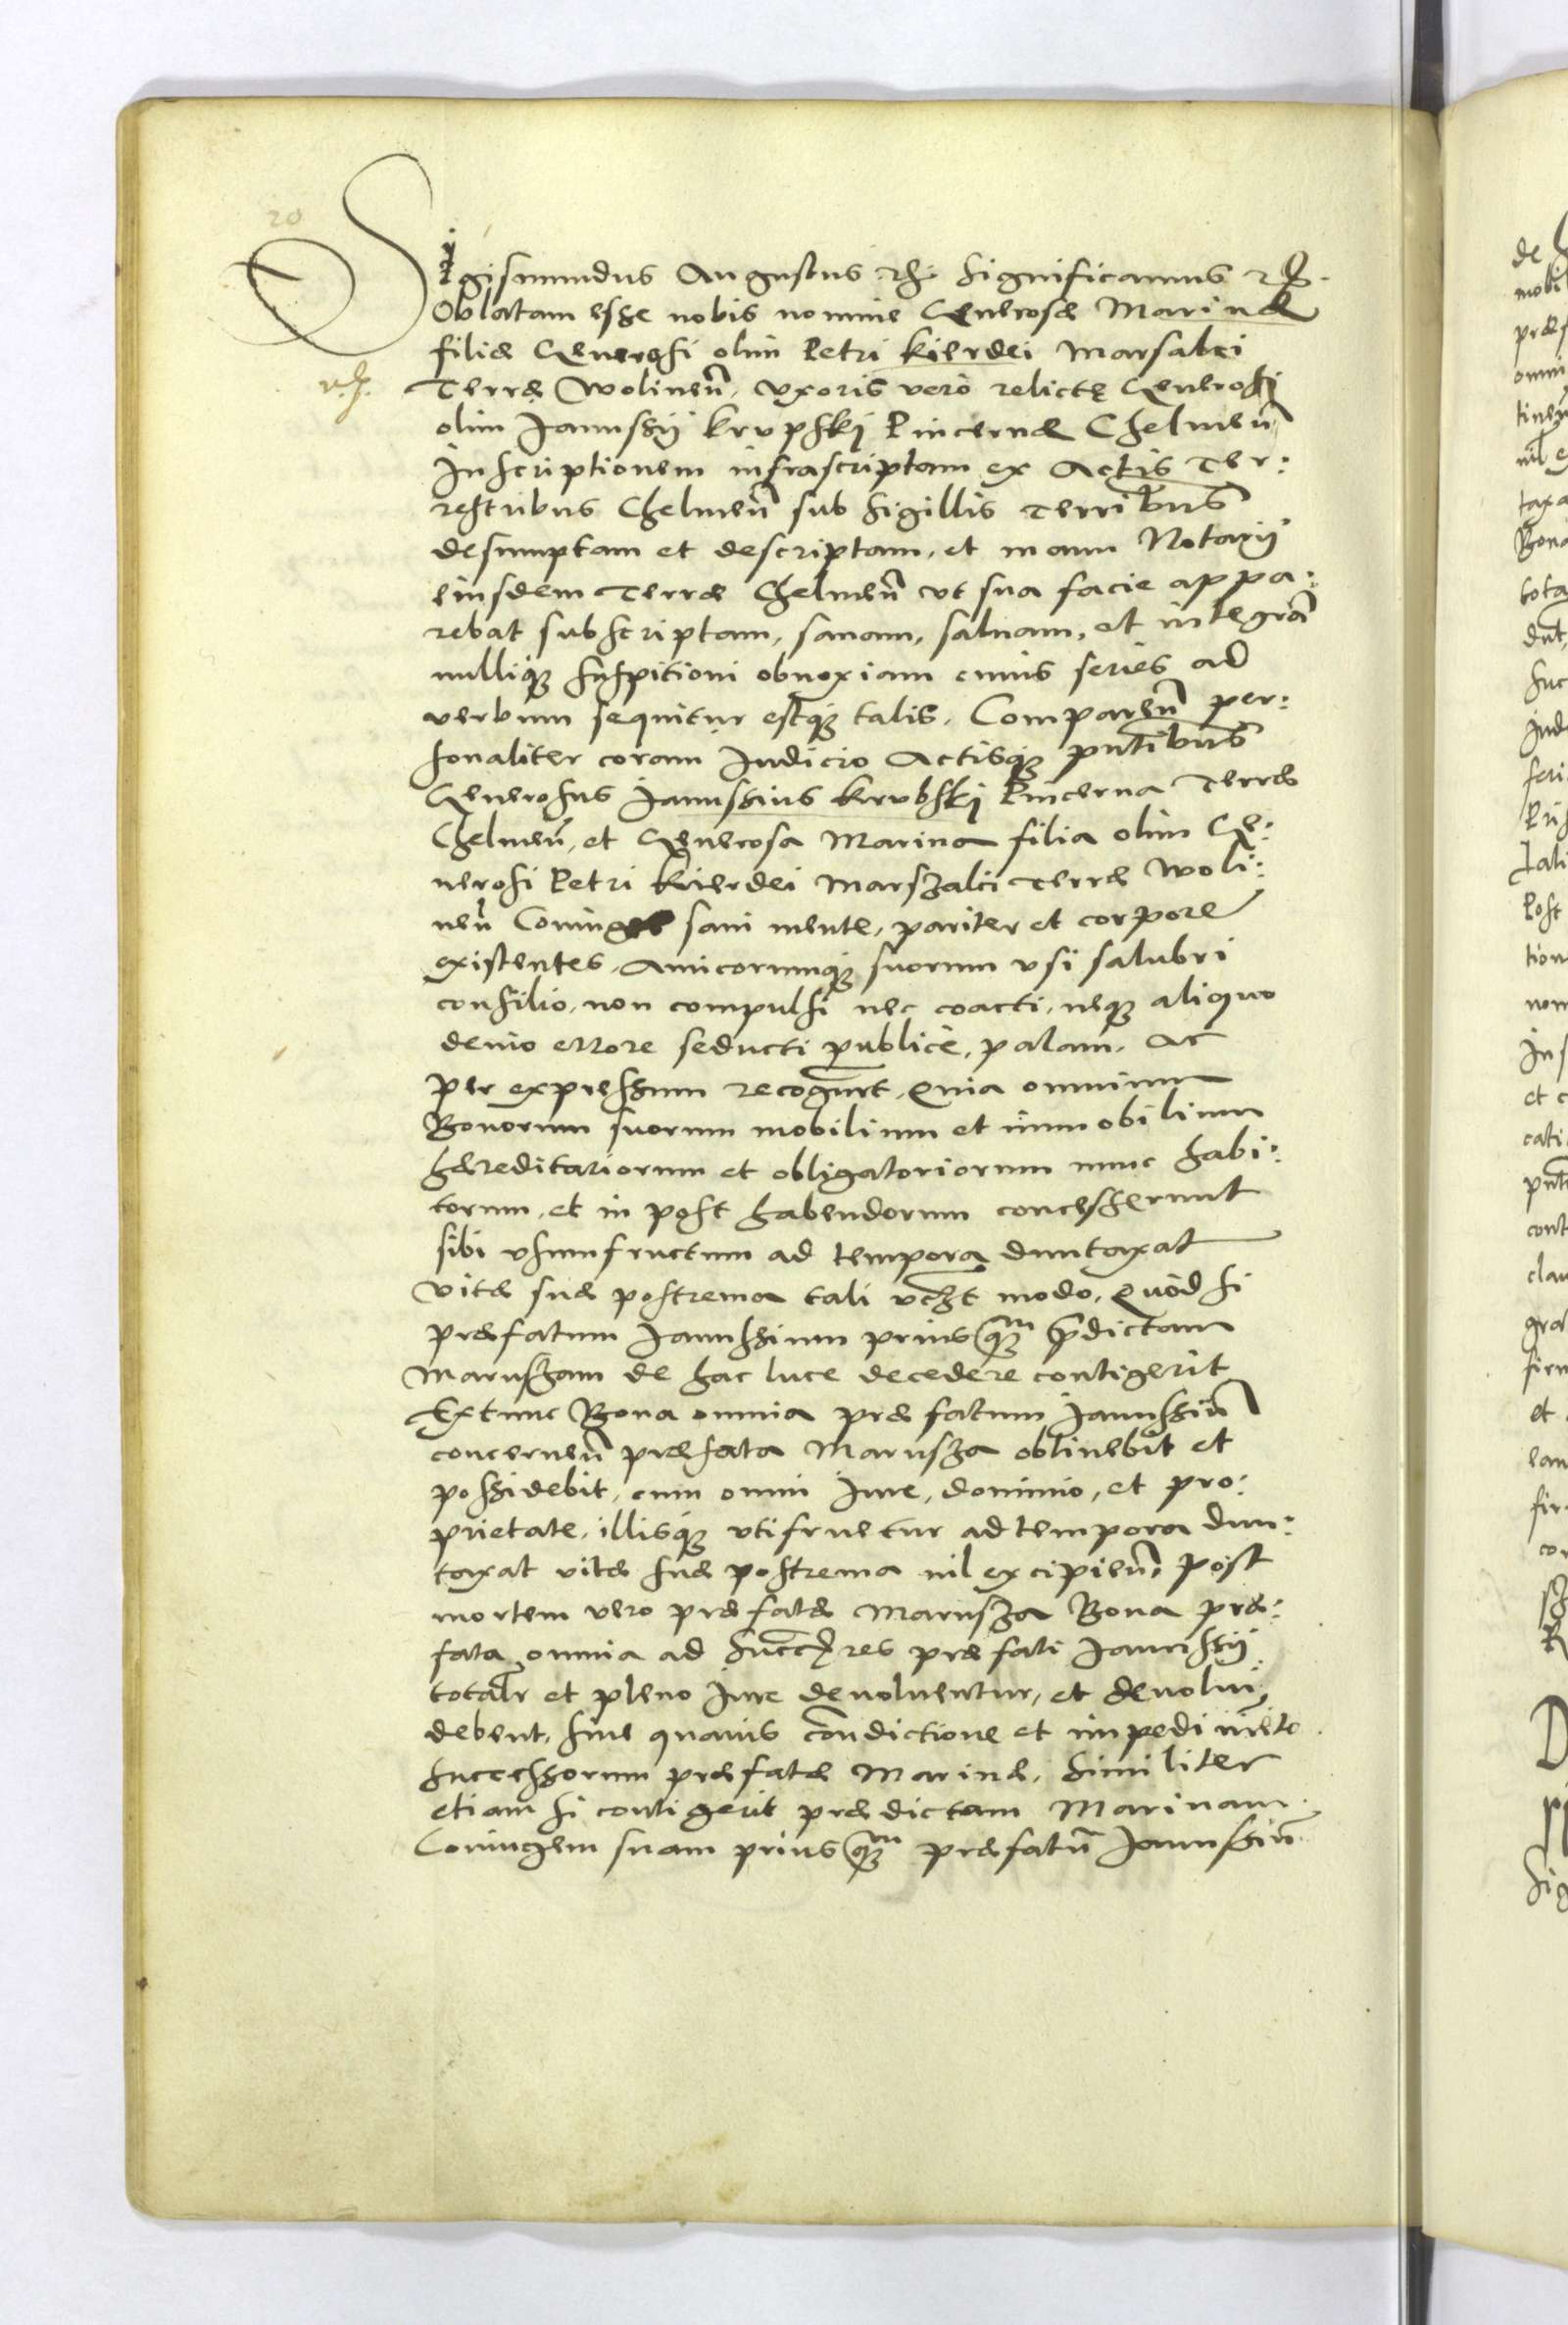 20
Sigismundus Augustus rex significamus etc.
Oblatam esse nobis nomine Generosæ Marinæ
filiæ Generosi olim Petri Kierdei Marsalci
Terræ Wolineñ, Vxoris verò relictę Generosi
olim Janussij Krupskj Pincernæ Chelmeñ
Inscriptionem infrascriptam ex Actis Ter:
restribus Chelmeñ sub sigillis Terribus
desumptam et descriptam, et manu Notarij
eiusdem Terræ Chelmeñ vt sua facie appa:
rebat subscriptam, sanam, saluam, et integrã
nulliq; suspitioni obnoxiam cuius series ad
verbum sequitur estq; talis. Compareñ per:
sonaliter coram Judicio Actisq; pñtibus
Generosus Janussius Krubskj Pincerna Terræ
Chelmeñ, et Generosa Marina filia olim Ge:
nerosi Petri Kierdei Marszalci Terræ Woli:
neñ Coniuges sani mente, pariter et corpore
existentes, Amicorumq; suorum vsi salubri
consilio, non compulsi nec coacti, neq; aliquo
deuio errore seducti publicè, palam, ac
per expressum recogñrt, Quia omnium
Bonorum suorum mobilium et immobilium
hæreditariorum et obligatoriorum nunc habi:
torum, et in post habendorum concesserunt
sibi vsumfructum ad tempora duntaxat
vitæ suæ postrema tali vcht modo, Quòd si
præfatum Janussium priusq;m prdictam
Maruszam de hac luce decedere contigerit
Extunc Bona omnia præfatum Janussiũ
concerneñ præfata Marusza obtinebit et
possidebit, cum omni Jure, dominio, et pro:
prietate, illisq; vtifruetur ad tempora dun:
taxat vitæ suæ postrema nil excipieñ, Post
mortem vero præfatæ Marusza Bona præ:
fata omnia ad succres præfati Janussij
totalr et pleno Jure deuoluentur, et deuolui
debent, sine quauis condictione et impedimẽto
successorum præfatæ Marinæ, Similiter
etiam si contigerit prædictam Marinam
Coniugem suam priusq;m præfatũ Janussiũ